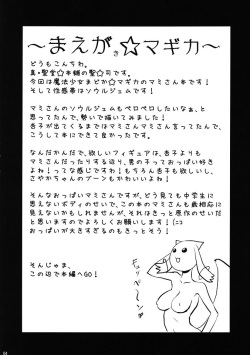 ～まえがき☆マギカ～
どうもこんちわ。
真・聖堂☆本舗の聖☆司です。
今回は魔法少女まどか☆マギカのマミさん本です！
そして性感帯はソウルジェムです。
マミさんのソウルジェムもペロペロしたいなぁ、と
思ってたんで、勢いで描いてみました！
杏子が出てくるまではマミさんマミさん言ってたんで、
こうして本にできて良かったです。
なんだかんだで、欲しいフィギュアは、杏子よりも
マミさんだったりする辺り、男の子っておっぱい好き
よね！って感じです。もちろん杏子も欲しいし、
さやかちゃんのブーンもかわいいよね！
そんなおっぱいマミさんですが、どう見ても中学生に
見えないボディのせいで、この本のマミさんも歳相応に
見えないかもしれませんが、それはきっと原作のせいだと
思いますのでよろしくお願いします！(ﾆｺ
おっぱいが大きすぎるのもきっと！
そんじゃま、
この辺で本編へGO！
04